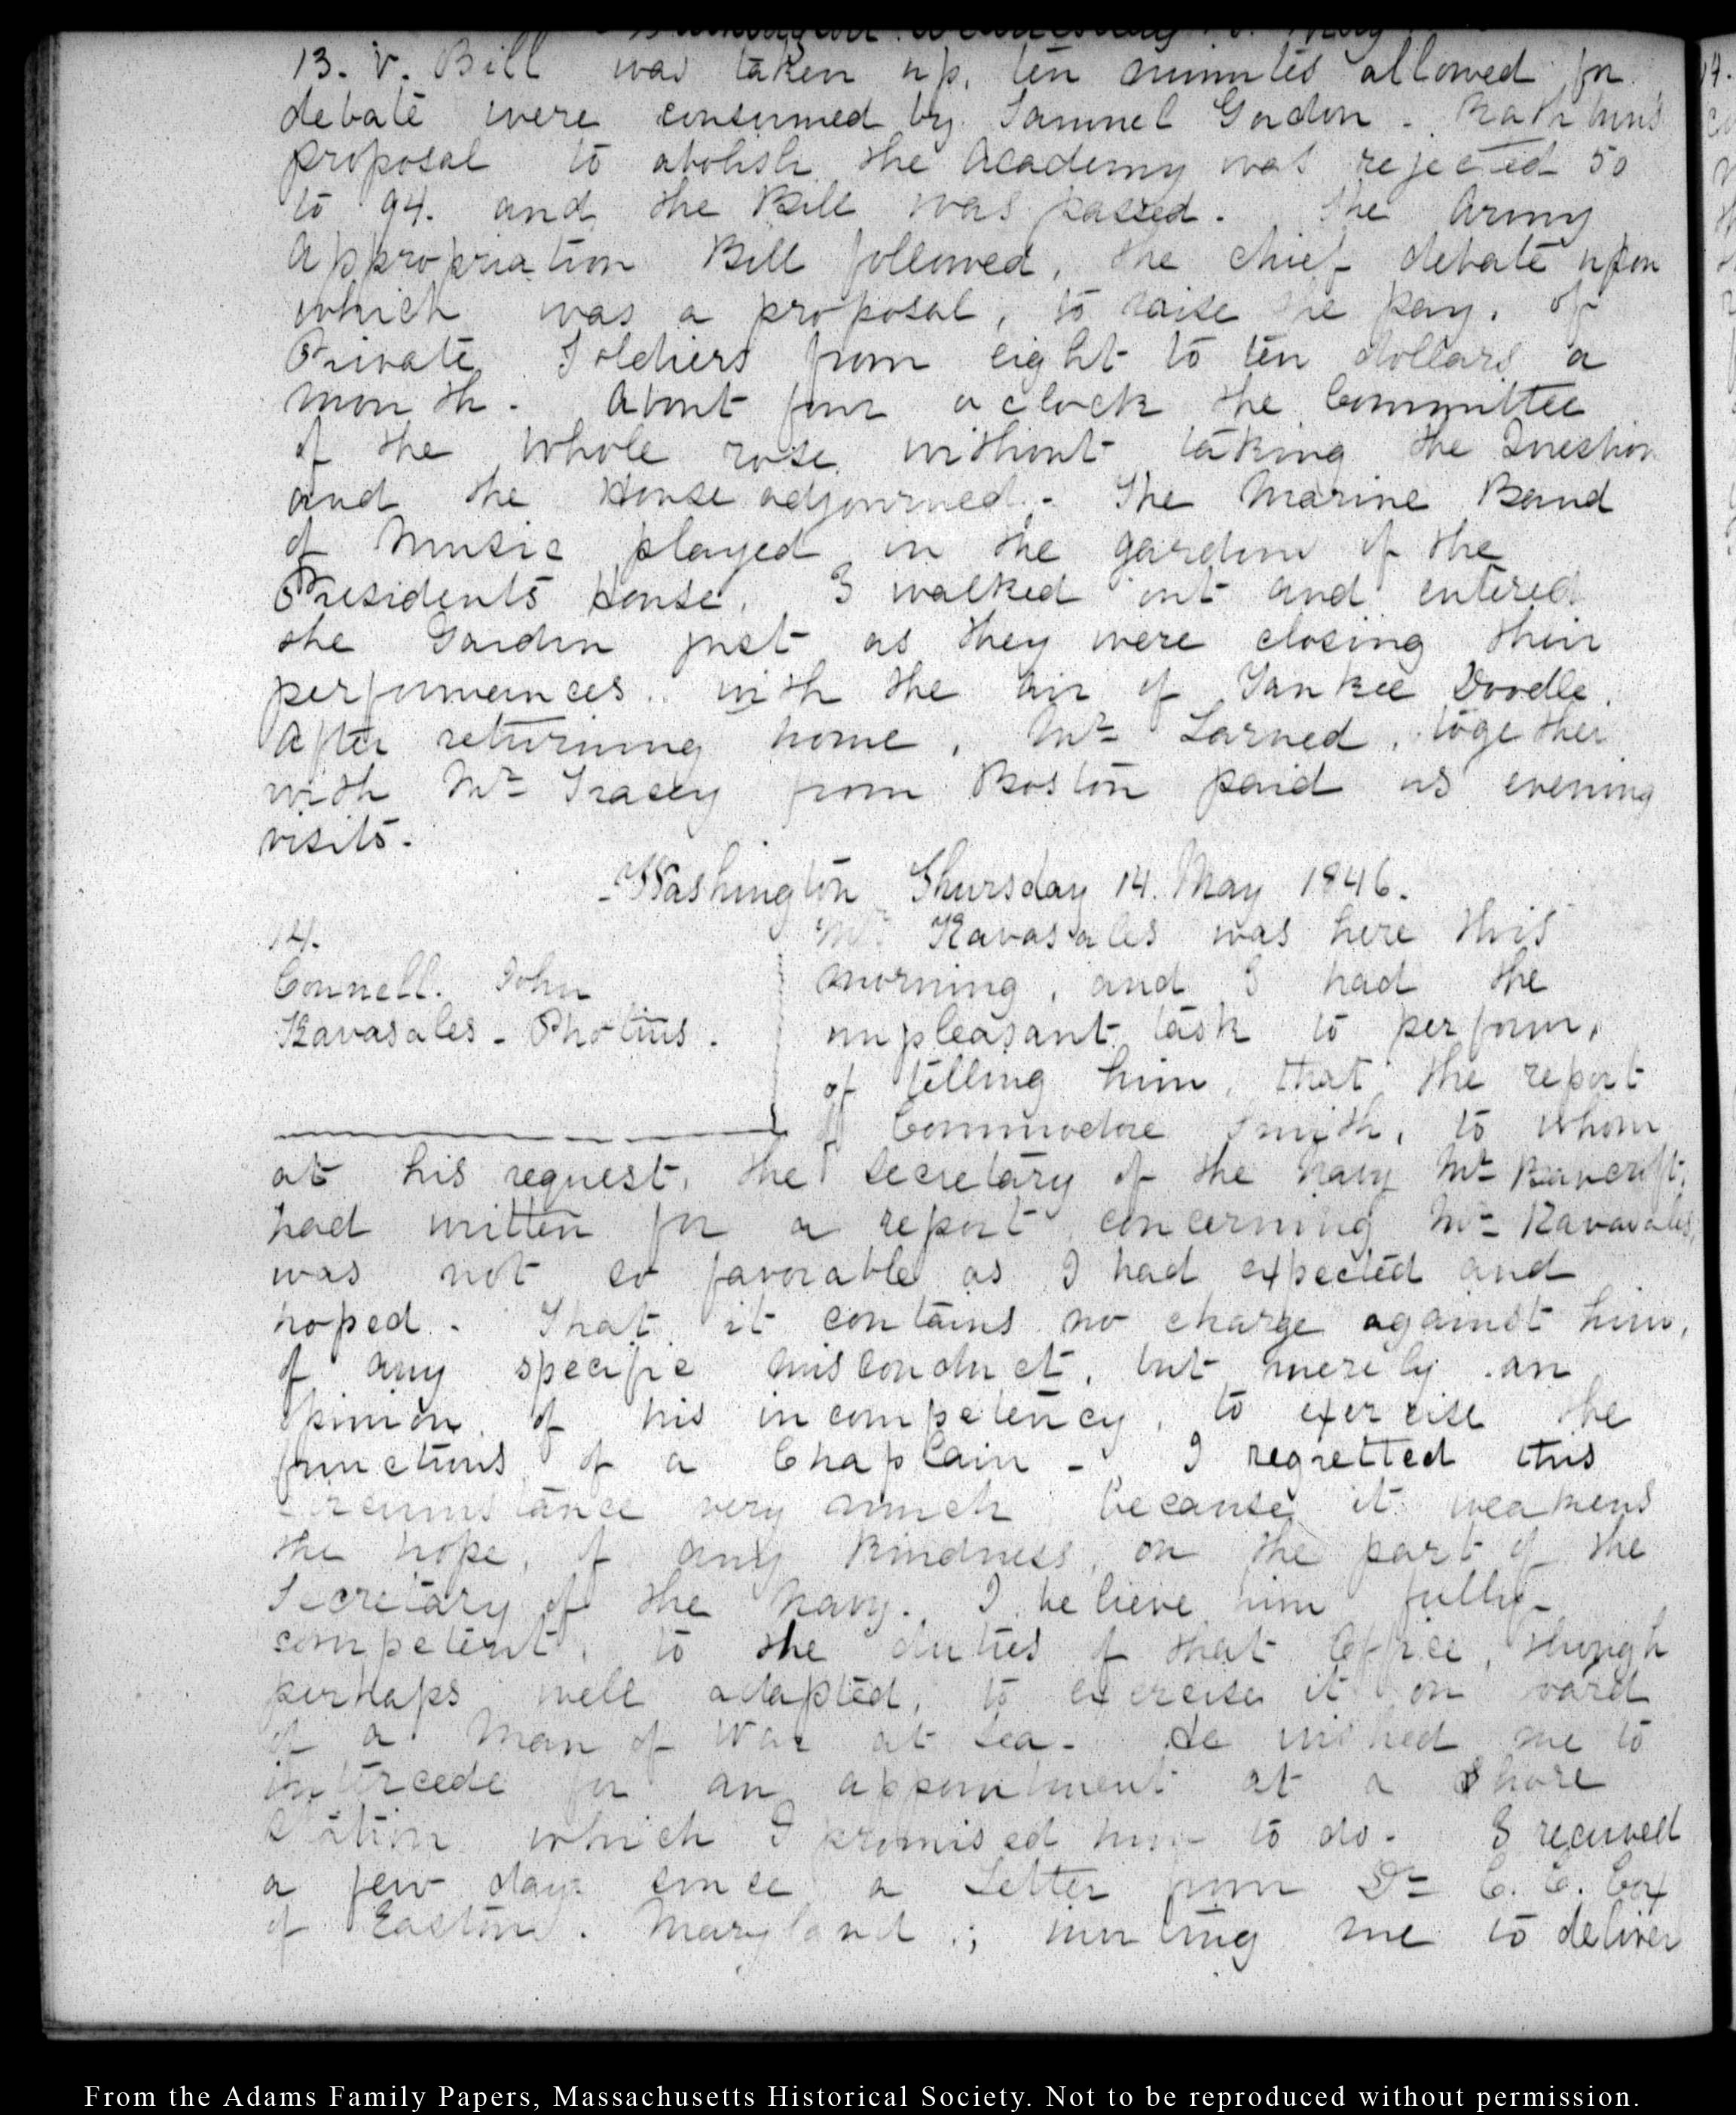 Washington Wednesday 13. May
13. V. Bill was taken up, ten minutes allowed for
debate were consumed by Samuel Gordon - Rathbuns
proposal to abolish the Academy was rejected 50
to 94. and the Bill was passed. The Army
Appropriation Bill followed, the chief debate upon
which was a proposal, to raise the pay, of
Private Soldiers from eight to ten dollars a
month. About four o clock the Committee
of the Whole rose without taking the Question
and the House adjourned. - The Marine Band
of Music played in the garden of the
Presidents House. I walked out and entered
the Garden just as they were closing their
performances.. with the air of Yankee Doodle.
After returning home, Mr Larned, together
with Mr Tracey from Boston paid us evening
visits.
- Washington Thursday 14. May 1846.
14.
Connell. John
Kavasales - Photius.
Mr Kavasales was here this
morning, and I had the
unpleasant task to perform,
of telling him, that the report
of Commodore Smith, to whom
at his request, the Secretary of the Navy Mr Bancroft,
had written for a report concerning Mr Kavasales,
was not so favorable as I had expected and
hoped. That it contains no charge against him,
of any specific misconduct, but merely an
opinion of his incompetency, to exercise the
functions of a Chaplain - I regretted this
circumstance very much because it weakens
the hope, of any kindness on the part of the
Secretary of the Navy. I believe him fully
competent, to the duties of that Office, though
perhaps well adapted, to exercise it on board
of a Man of War at Sea - He wished me to
intercede for an appointment at a Shore
Station which I promised him to do. I received
a few days since a Letter from Dr C. C. Cox
of Easton. Maryland; inviting me to deliver
From the Adams Family Papers, Massachusetts Historical Society. Not to be reproduced without permission.